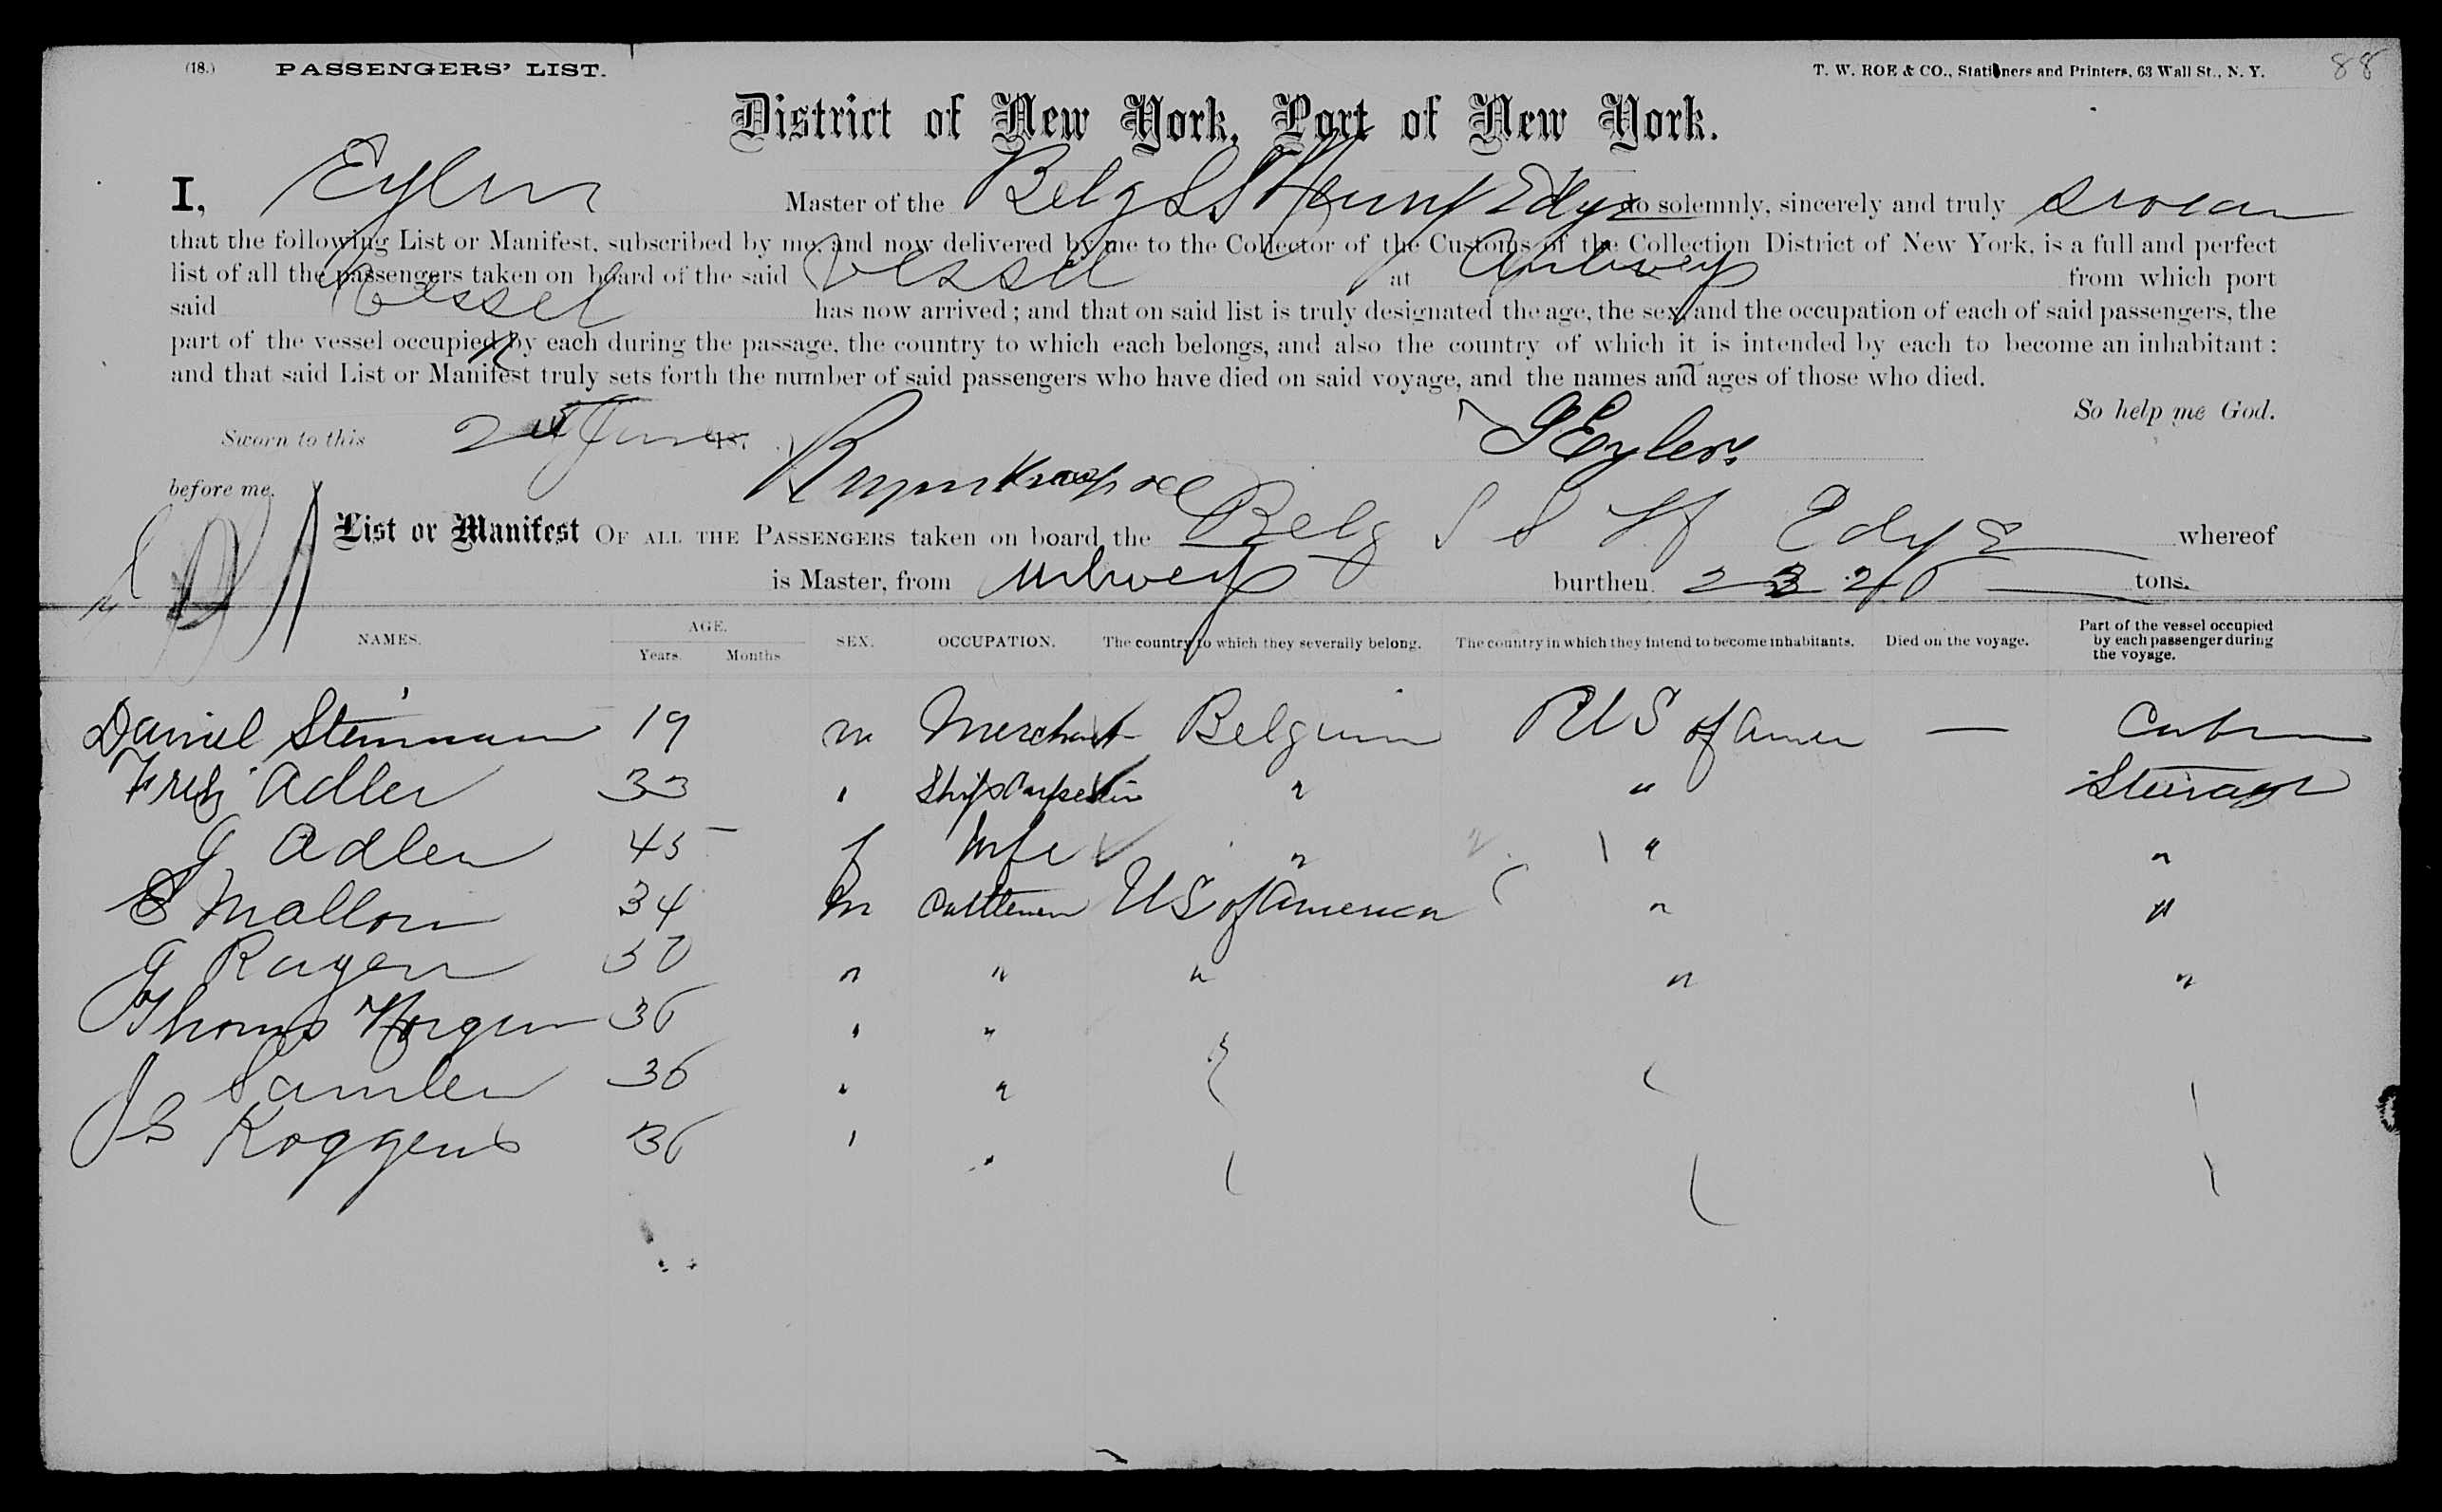 (18.) PASSENGERS' LIST. T. W. ROE & CO., Stationers and Printers, 63 Wall St., N. Y. 88
District of New York, Port of New York.
I, Eylers Master of the Belg SS Henry Edye do solemnly, sincerely and truly swear
that the following List or Manifest, subscribed by me, and now delivered by me to the Collector of the Customs of the Collection District of New York, is a full and perfect
list of all the passengers taken on board of the said Vessel at Antwerp from which port
said Vessel has now arrived; and that on said list is truly designated the age, the sex, and the occupation of each of said passengers, the
part of the vessel occupied by each during the passage, the country to which each belongs, and also the country of which it is intended by each to become an inhabitant:
and that said List or Manifest truly sets forth the number of said passengers who have died on said voyage, and the names and ages of those who died.
So help me God.
Sworn to this 2 June 187 Eylers
before me,
List or Manifest OF ALL THE PASSENGERS taken on board the Belg S S H Edye whereof
is Master, from Antwerp burthen tons.
NAMES. AGE. Years. Months. SEX. OCCUPATION. The country to which they severally belong. The country in which they intend to become inhabitants. Died on the voyage. Part of the vessel occupied by each passenger during the voyage.
Daniel Steinmann 19 m Merchant Belgium US of Amer — Cabin
Adler 33 " Ships Carpenter " " Steerage
G Adler 45 f Wife " " "
S Mallon 34 m Cattlemen US of America " "
G Ragen 30 " " " " "
Thomas 36 " "
36 " "
Js Roggens 36 " "